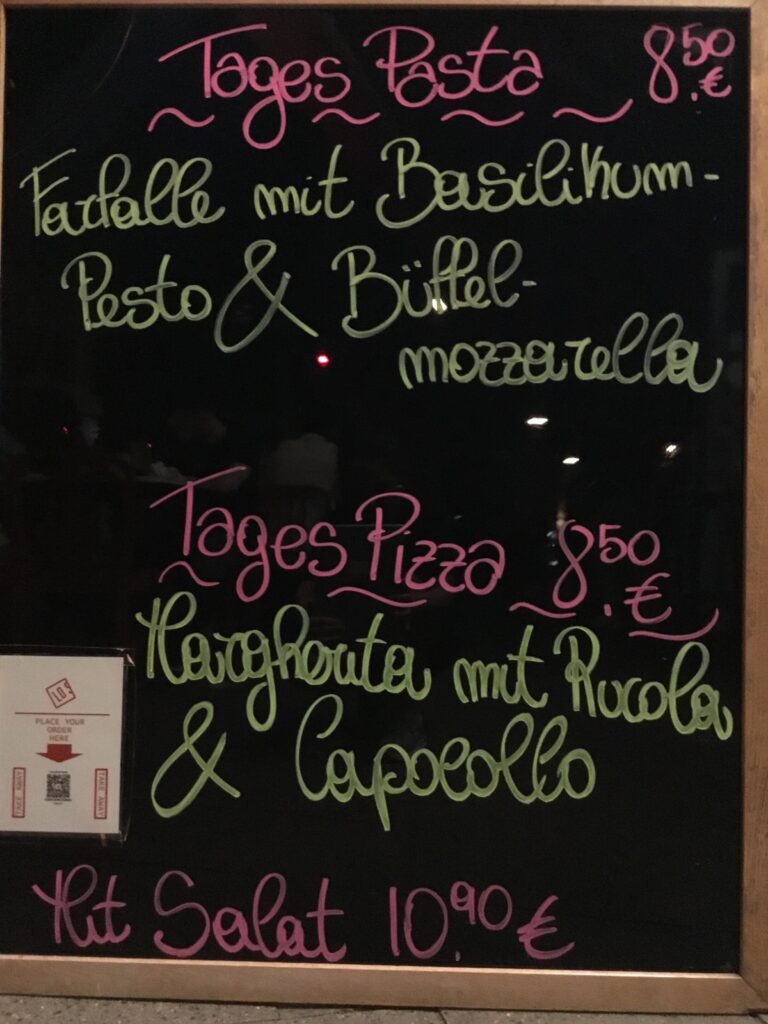 Tages Pasta 8.50 €
Farfalle mit Basilikum-
Pesto & Büffel-
mozzarella
Tages Pizza 8.50 €
Margherita mit Rucola
& Capocollo
Mit Salat 10.90 €
PLACE YOUR
ORDER
HERE
TAKE AWAY
TAKE AWAY